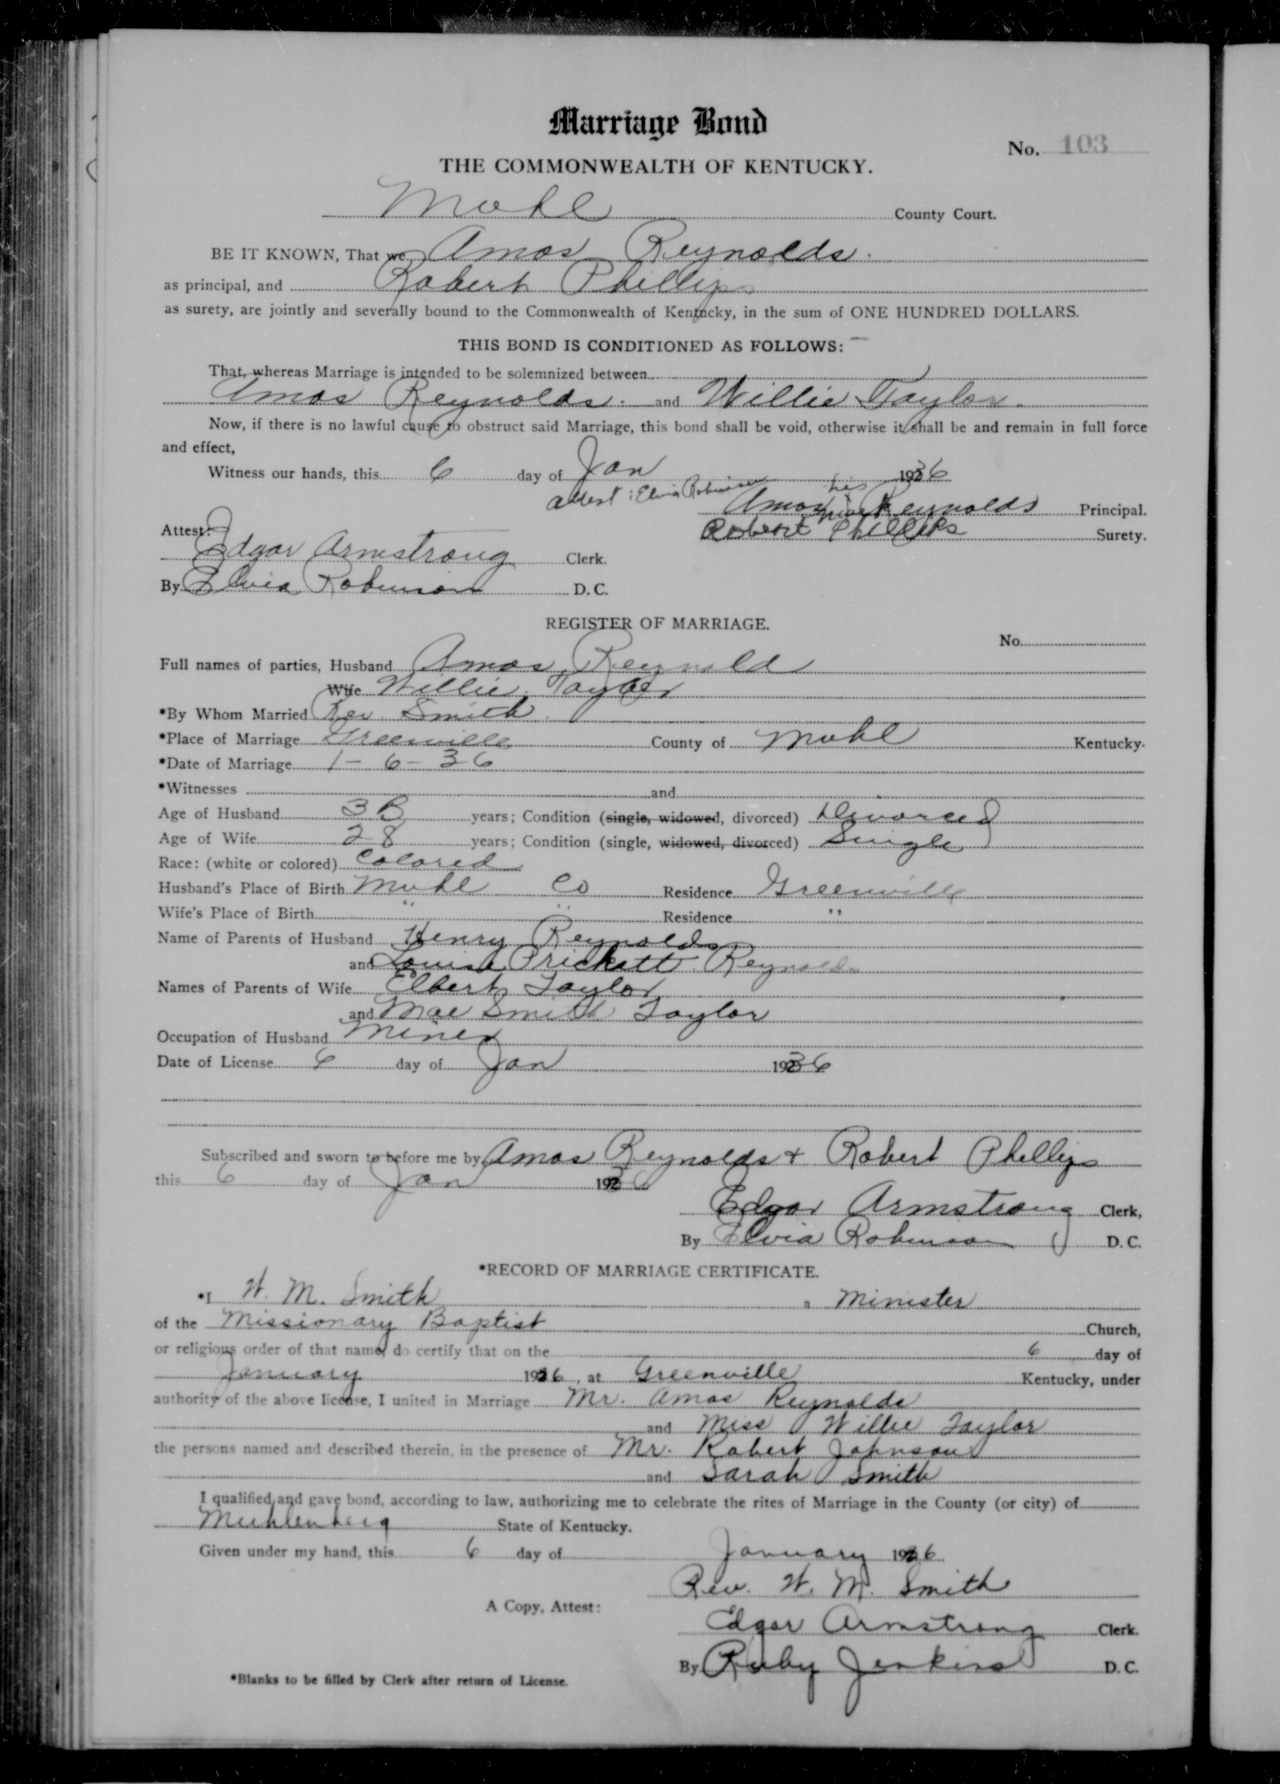 Marriage Bond
No. 103
THE COMMONWEALTH OF KENTUCKY.
Muhl County Court.
BE IT KNOWN, That we, Amos Reynolds.
as principal, and Robert Phillips
as surety, are jointly and severally bound to the Commonwealth of Kentucky, in the sum of ONE HUNDRED DOLLARS.
THIS BOND IS CONDITIONED AS FOLLOWS:
That, whereas Marriage is intended to be solemnized between
Amos Reynolds. and Willie Taylor.
Now, if there is no lawful cause to obstruct said Marriage, this bond shall be void, otherwise it shall be and remain in full force
and effect,
Witness our hands, this 6 day of Jan 1936
attest: Elvia Robinson
Amos his mark Reynolds Principal.
Robert Phillips Surety.
Attest:
Edgar Armstrong Clerk.
By Elvia Robinson D. C.
REGISTER OF MARRIAGE.
No.
Full names of parties, Husband Amos Reynold
Wife Willie Taylor
*By Whom Married Rev Smith
*Place of Marriage Greenville County of Muhl Kentucky.
*Date of Marriage 1-6-36
*Witnesses and
Age of Husband 38 years; Condition (single, widowed, divorced) Divorced
Age of Wife 28 years; Condition (single, widowed, divorced) Single
Race: (white or colored) Colored
Husband's Place of Birth Muhl Co Residence Greenville
Wife's Place of Birth " " Residence "
Name of Parents of Husband Henry Reynolds
and Louisa Prickett Reynolds
Names of Parents of Wife Elbert Taylor
and Mae Smith Taylor
Occupation of Husband Miner
Date of License 6 day of Jan 1936
Subscribed and sworn to before me by Amos Reynolds + Robert Phillips
this 6 day of Jan 1936
Edgar Armstrong Clerk,
By Elvia Robinson D. C.
*RECORD OF MARRIAGE CERTIFICATE.
*I W. M. Smith a Minister
of the Missionary Baptist Church,
or religious order of that name, do certify that on the 6 day of
January 1936, at Greenville Kentucky, under
authority of the above license, I united in Marriage Mr. Amos Reynolds
and Miss Willie Taylor
the persons named and described therein, in the presence of Mr. Robert Johnson
and Sarah Smith
I qualified and gave bond, according to law, authorizing me to celebrate the rites of Marriage in the County (or city) of
Muhlenberg State of Kentucky.
Given under my hand, this 6 day of January 1936
Rev. W. M. Smith
A Copy, Attest:
Edgar Armstrong Clerk.
By Ruby Jenkins D. C.
*Blanks to be filled by Clerk after return of License.